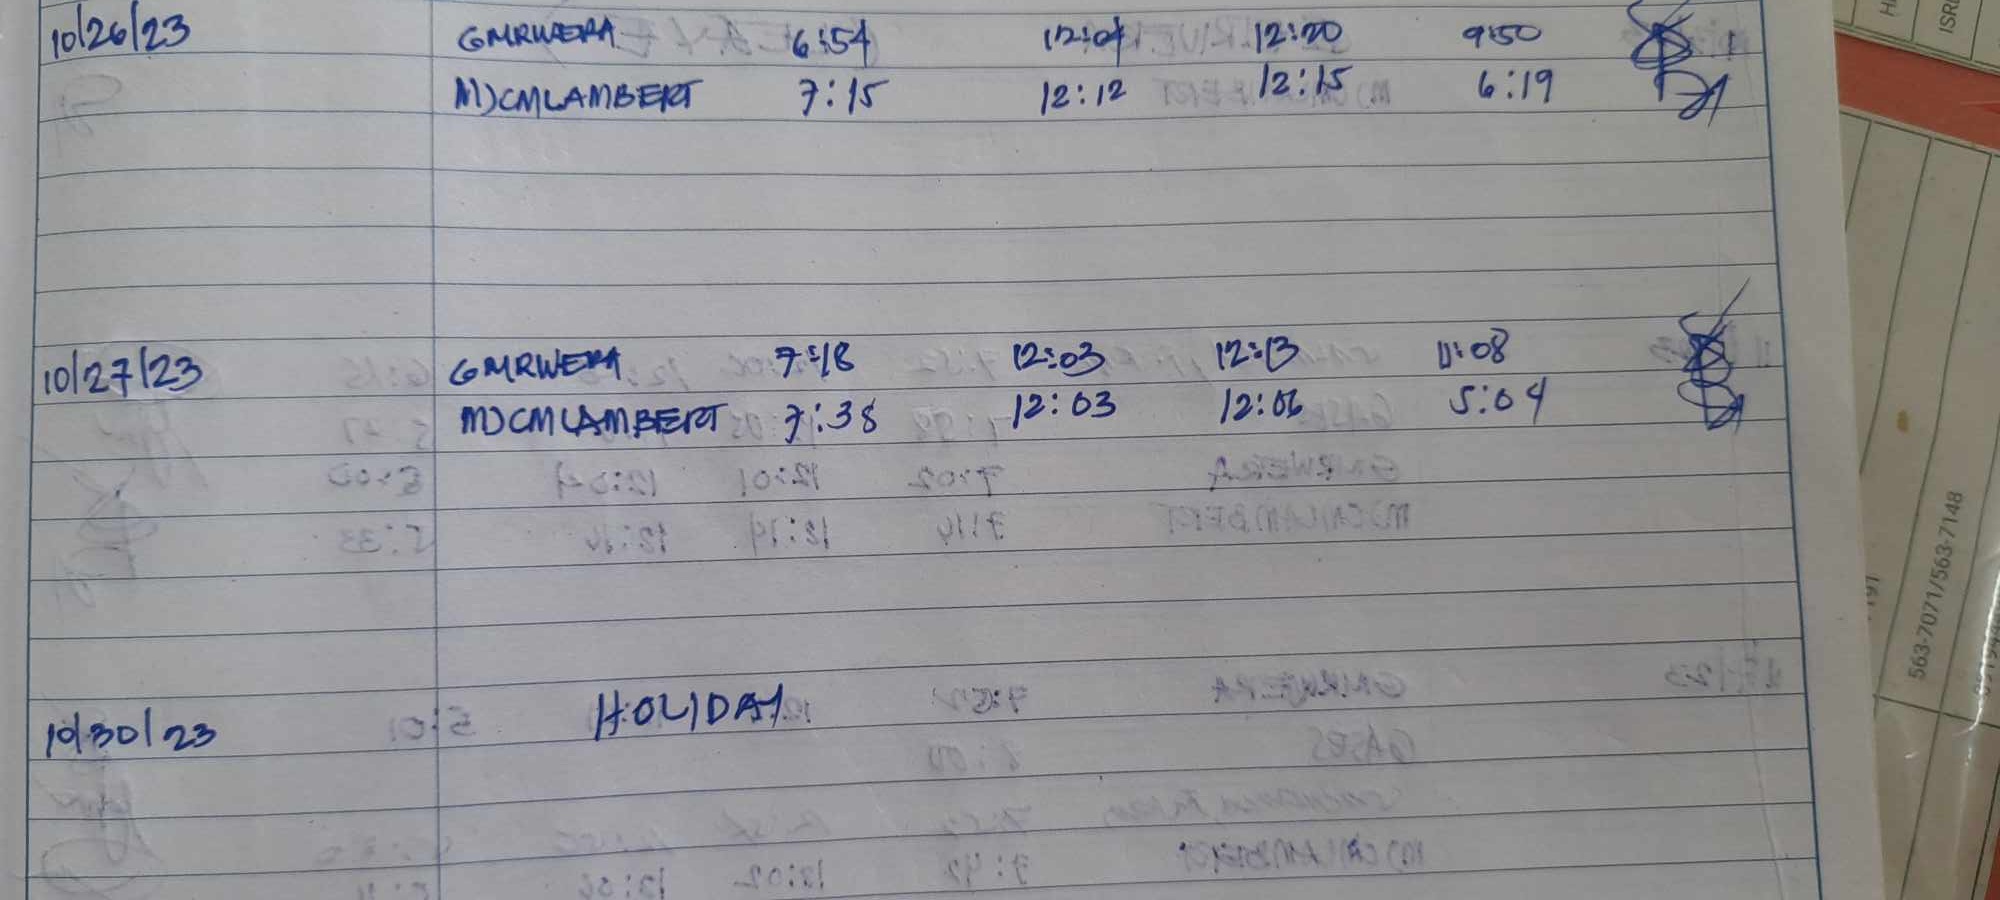 10/26/23 GMRWERA 6:54 12:04 12:20 9:50
MJCMLAMBERT 7:15 12:12 12:15 6:19
10/27/23 GMRWERA 7:18 12:03 12:13 11:08
MJCMLAMBERT 7:38 12:03 12:06 5:04
10/30/23 HOLIDAY
563-7071/563-7148